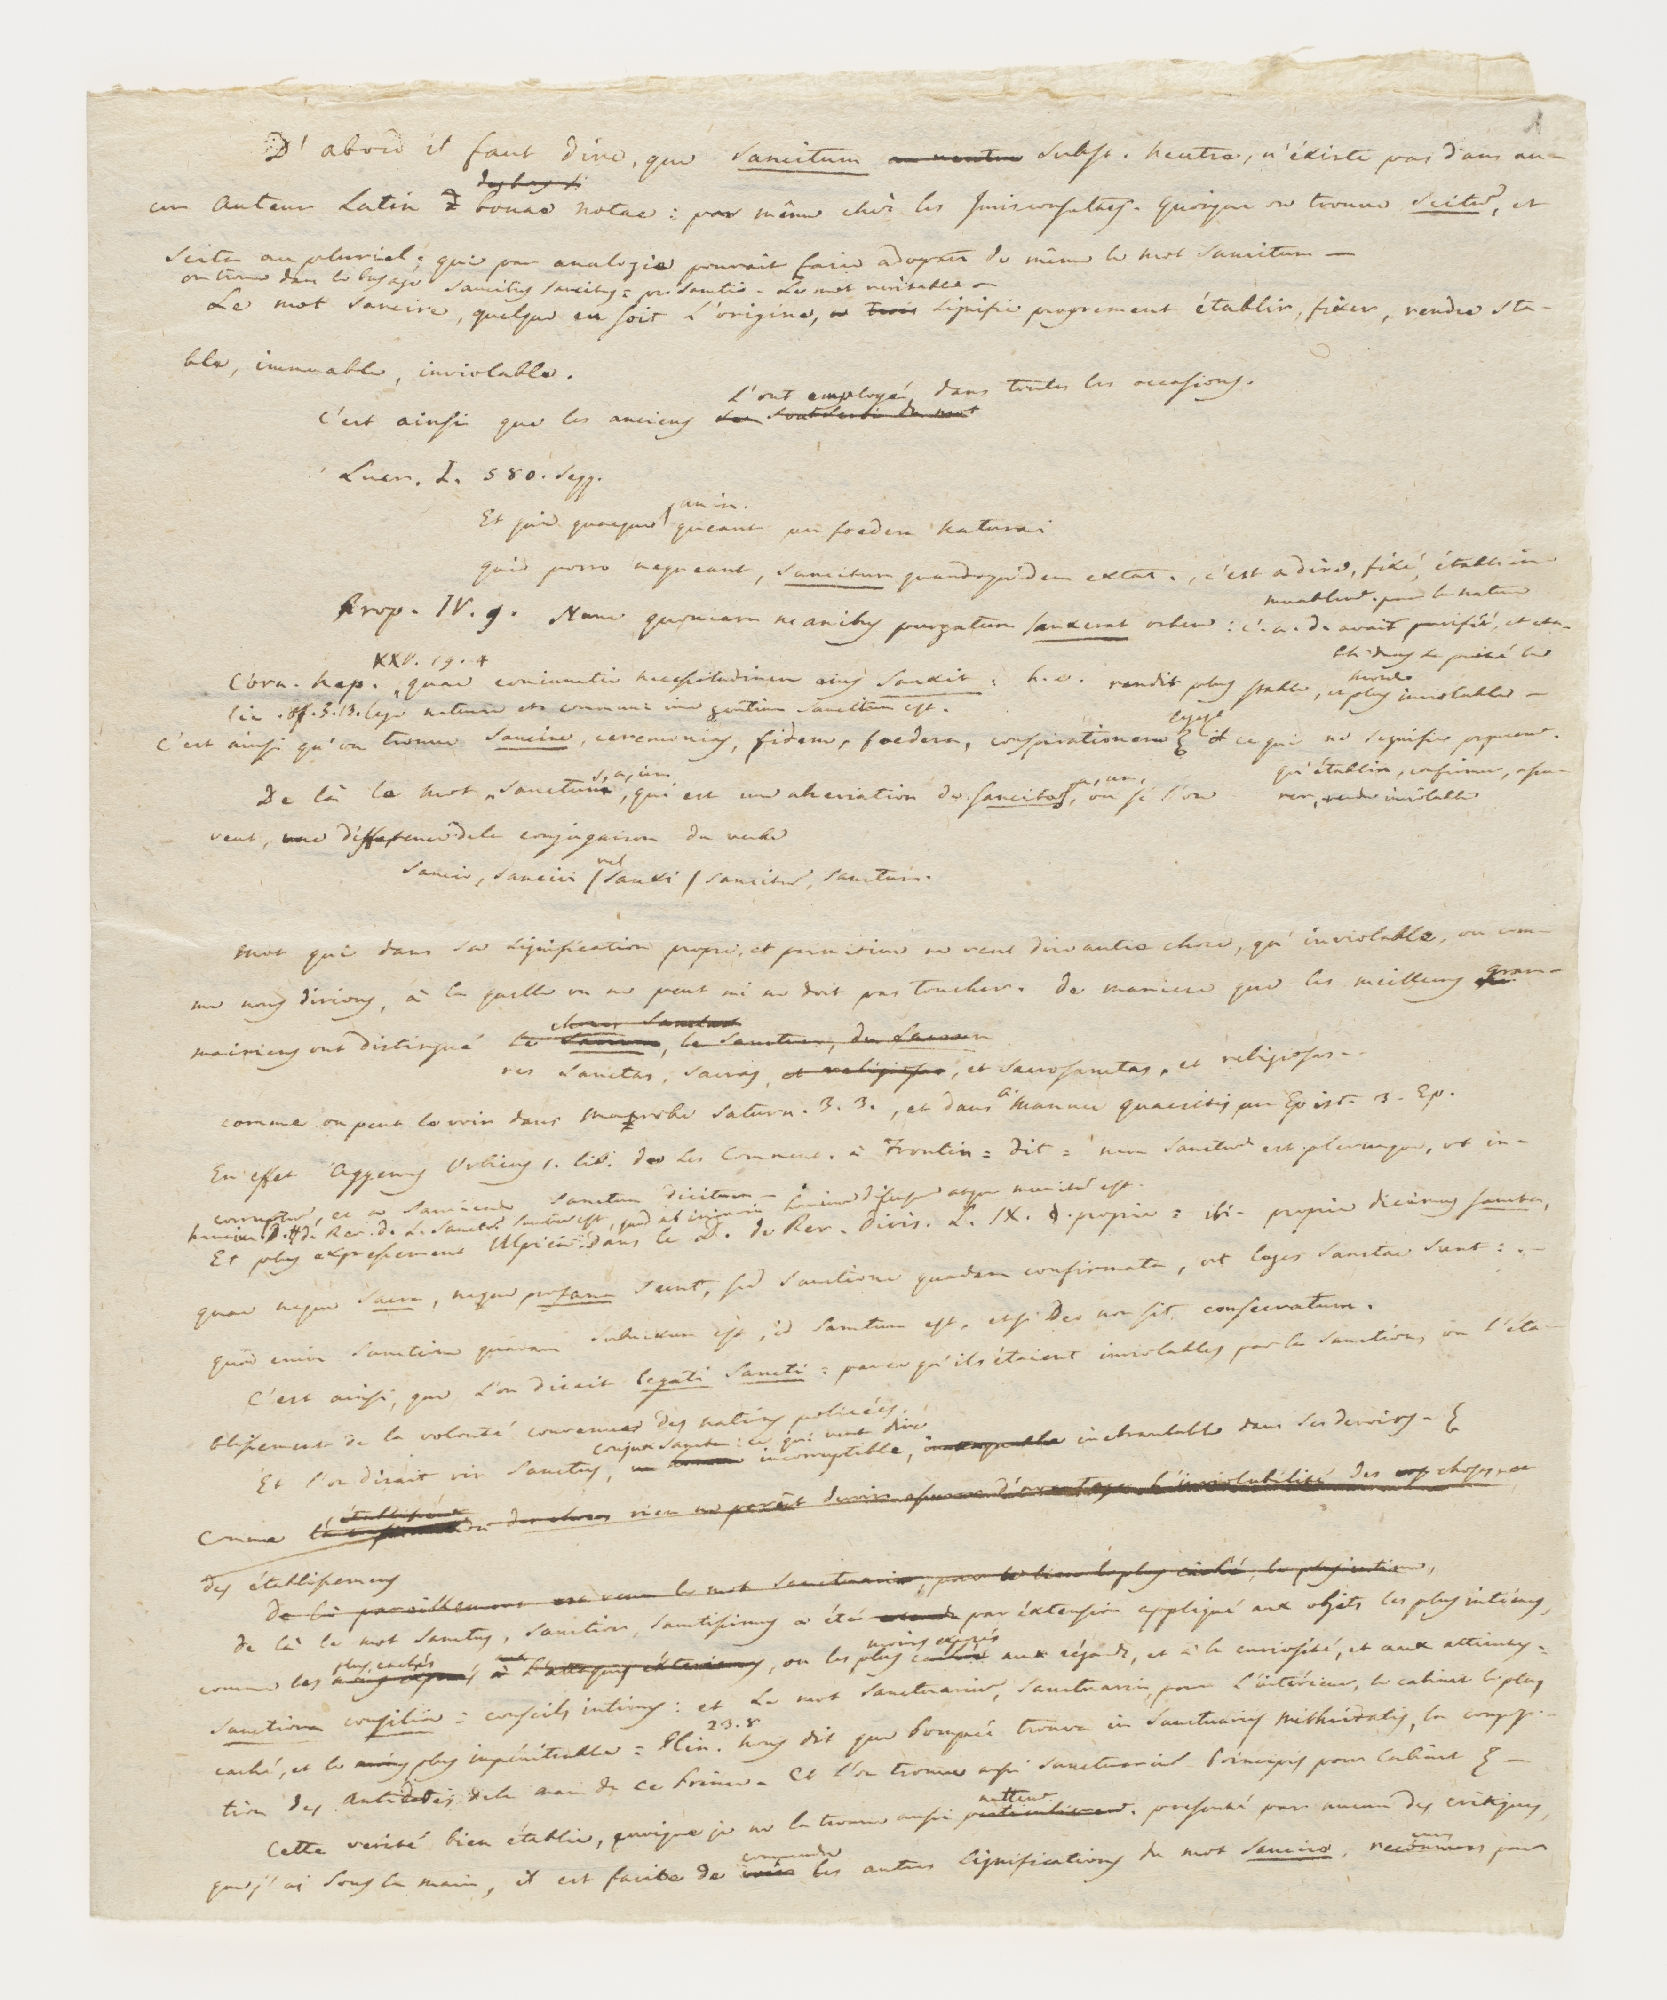 D'abord il faut dire, que Sancitum subst. neutre, n'éxiste pas dans au-
cun Auteur Latin bonae notae : pas même chèz les Jurisconsultes. Quoique on trouve Scitum, et
Scita au pluriel : qui par analogie pourrait faire adopter de même le mot Sancitum —
on trouve dans le bas age Sancitus Sancitus = pr. Sanctio - Le mot veritable -
Le mot Sancire, quelque en soit l'origine, signifie proprement établir, fixer, rendre sta-
ble, immuable, inviolable.
l'ont employé, dans toutes les occasions.
C'est ainsi que les anciens se sont servi du mot
Lucr. I. 580. Seqq.
Et quid quaeque queant per foedera naturai
quid porro nequeant, sancitum quandoquidem extat., c'est a dire, fixé, établi im-
muablem. par la nature
Prop. IV. 9. Hunc quoniam manibus purgatum sanxerat orbem : c. a. d. avait purifié, et éta-
XXV. 19. 4
Corn. Nep. quae coniunctio necessitudinem eius Sanxit : h. e. rendit plus stable, et plus inviolable -
Cic. off. 3. 13. lege naturae et communi iure gentium sancitum est.
C'est ainsi qu'on trouve Sancire, ceremonias, fidem, foedera, conspirationem & ce qui ne signifie proprem.
qu'établir, confirmer, assu-
rer, rendre inviolable
De là le mot Sanctus, a, um, qui est une abreviation de sancitus, a, um, ou si l'on
veut, une difference de la conjugaison du verbe
Sancio, Sancivi / vel Sanxi / sancitum, sanctum.
mot qui dans sa signification propre, et primitive ne veut dire autre chose, qu'inviolable, ou com-
me nous dirions, à la quelle on ne peut ni ne doit pas toucher. De maniere que les meilleurs gram-
mairiens ont distingué le Sacrum, le Sanctum, du Sacrum
res Sanctas, Sacras, et religiosas, et Sacrosanctas, et religiosas --
comme on peut le voir dans Macrobe Saturn. 3. 3., et dans Manuce quaesitis per Epist. 3. Ep.
En effet Aggenus Urbicus 1. lib. de ses Comment. à Frontin = dit = nam Sanctum est plerumque, ut in-
corruptum, et a Sanciendo Sanctum dicitur -
Et plus expressement Ulpien dans le D. de Rer. Divis. L. IX. §. proprie = ibi- proprie dicimus sancta,
quae neque Sacra, neque profana sunt, sed sanctione quadam confirmata, ut leges Sanctae sunt : . -
quod enim Sanctione quadam subnixum est, id Sanctum est, etsi Deo non sit consecratum.
C'est ainsi, que l'on disait legati Sancti = parce qu'ils étaient inviolables par la Sanction, ou l'éta-
blissement de la volonté convenue des nations policées.
conjux Sancta : ce qui veut dire
Et l'on disait vir Sanctus, incorruptible, inebranlable dans ses devoirs - &
Comme rien ne parait devoir assurer d'avantage l'inviolabilité des choses, et
des établissemens
De là pareillement est venu le mot Sanctuario, pour le lieu le plus caché, le plus intime,
de là le mot Sanctus, Sanction, Sanctissimus a été par éxtension appliqué aux objets les plus intimes,
plus cachés moins exposés
comme les à l'attaques éxterieures, ou les plus cachés aux régards, et à la curiosité, et aux atteintes =
Sanctiora consilia = conseils intimes : et le mot Sanctuarium, Sanctuaire, pour l'intérieur, le cabinet le plus
caché, et le plus impénétrable = Plin. 23. 8 nous dit que Pompée trouva in Sanctuariis Mithridatis, la compo-
tion des Antidotes de la main de ce Prince - Et l'on trouve aussi Sanctuarium Principis pour Cabinet & -
Cette verité bien établie, quoique je ne la trouve aussi nettem. presenté par aucun des critiques,
que j'ai sous la main, il est facile de comprendre les autres significations du mot Sancire, reconnues par